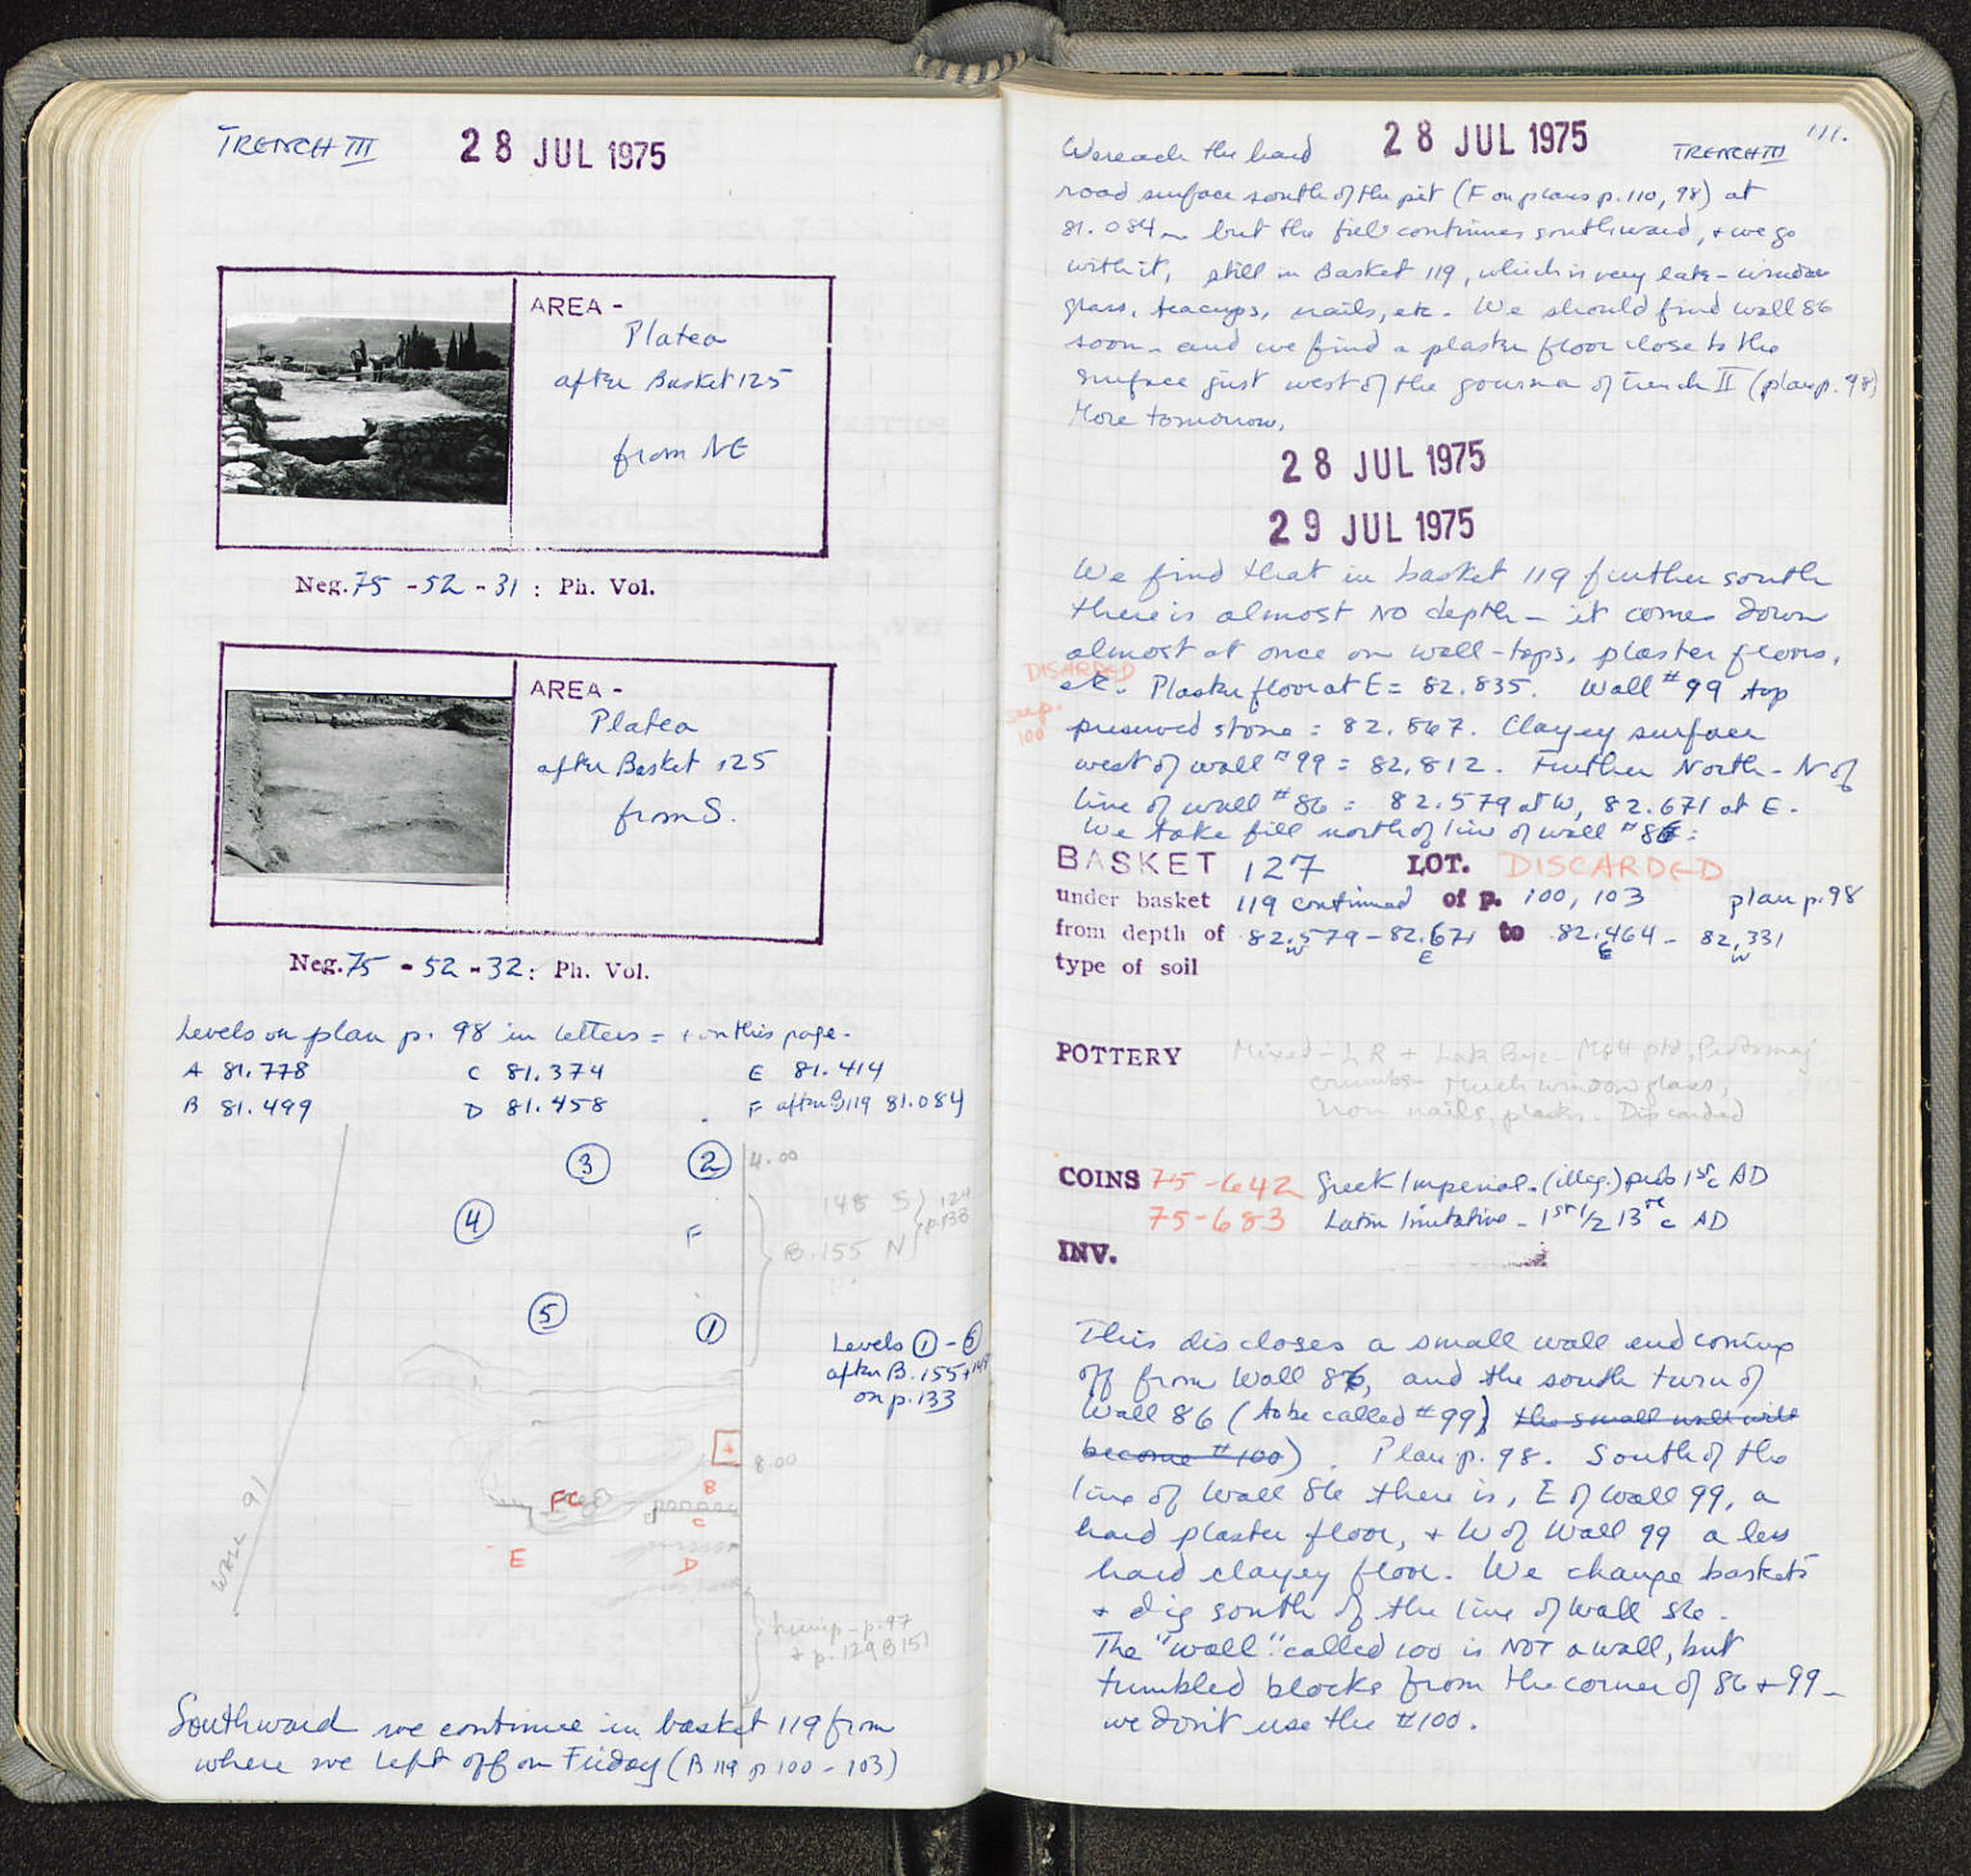 TRENCH III 28 JUL 1975
AREA -
Platea
after Basket 125
from NE
Neg. 75 - 52 - 31 : Ph. Vol.
AREA -
Platea
after Basket 125
from S.
Neg. 75 - 52 - 32 : Ph. Vol.
Levels on plan p. 98 in letters = + on this page.
A 81.778 C 81.374 E 81.414
B 81.499 D 81.458 F after B119 81.084
3 2 4.00
148 S } 124 p.133
4 F
B.155 N
5 1
Levels 1 - 5
after B.155 + 148
on p.133
A 8.00
B
FG
C
E D
WALL 91
hump - p.97
+ p.129 B151
Southward we continue in basket 119 from
where we left off on Friday (B 119 p 100 - 103)
111.
28 JUL 1975 TRENCH III
We reach the hard
road surface south of the pit (F on plans p. 110, 98) at
81.084m but the fill continues southward, + we go
with it, still in Basket 119, which is very late - window
glass, teacups, nails, etc. We should find wall 86
soon - and we find a plaster floor close to the
surface just west of the gourna of Trench II (plan p. 98)
More tomorrow.
28 JUL 1975
29 JUL 1975
We find that in basket 119 further south
there is almost NO depth - it comes down
almost at once on wall-tops, plaster floors,
DISARDED
etc. Plaster floor at E = 82.835. Wall #99 top
see p. 100
preserved stone = 82.867. Clayey surface
west of wall #99 = 82.812. Further North - N of
line of wall #86 = 82.579 at W, 82.671 at E.
We take fill north of line of wall #86:
BASKET 127 LOT. DISCARDED
under basket 119 continued of p. 100, 103 plan p. 98
from depth of 82.579 - 82.671 to 82.464 - 82.331
W E E W
type of soil
POTTERY Mixed - LR + Late Byz - Matt ptd, Protomaj
crumbs - Much window glass,
iron nails, plaster. Discarded
COINS 75-642 Greek Imperial. (illeg.) prob 1st c AD
75-683 Latin Imitative - 1st 1/2 13th c AD
INV.
This discloses a small wall end coming
off from Wall 86, and the south turn of
Wall 86 (to be called #99) the small wall will
become #100) . Plan p. 98. South of the
line of Wall 86 there is, E of Wall 99, a
hard plaster floor, + W of Wall 99 a less
hard clayey floor. We change baskets
+ dig south of the line of Wall 86.
The "wall" called 100 is NOT a wall, but
tumbled blocks from the corner of 86 + 99 -
we don't use the #100.